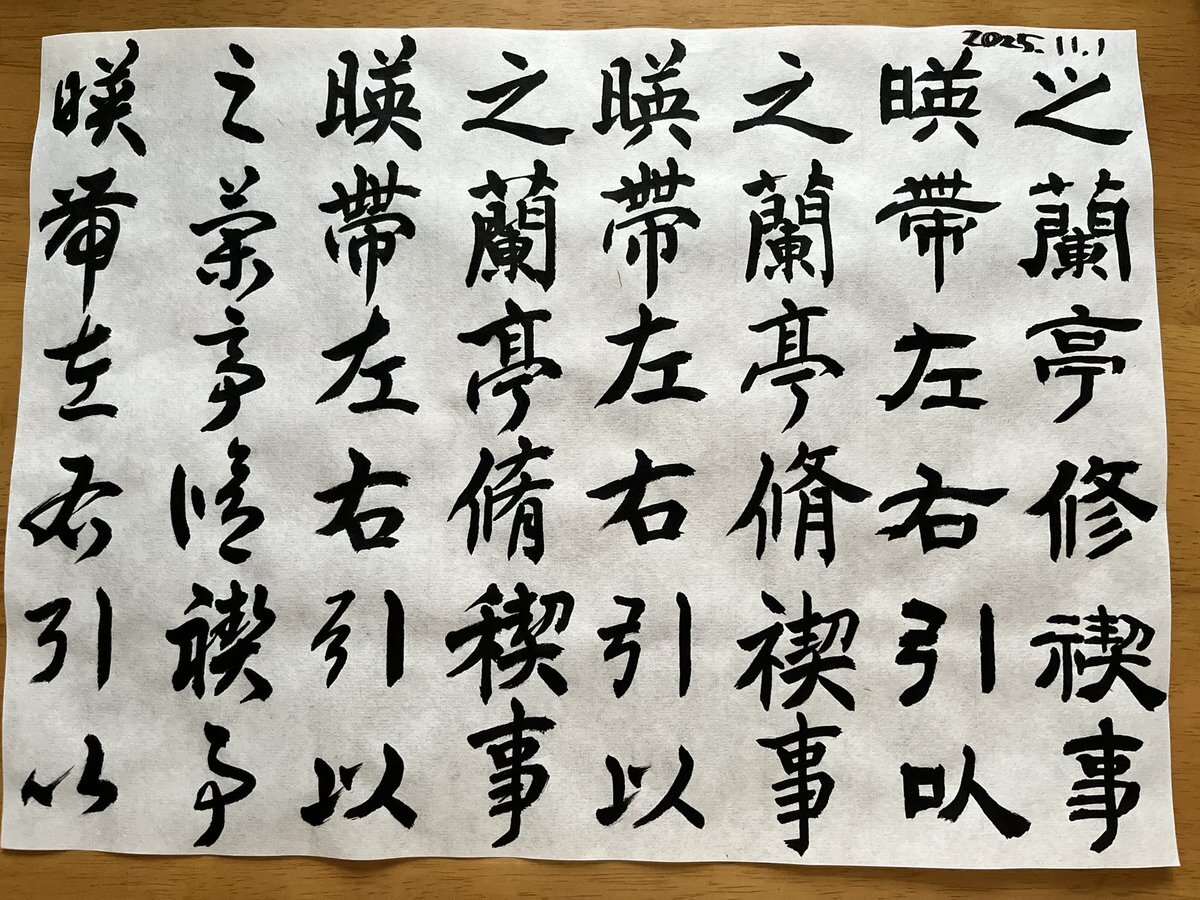 2025.11.1
之蘭亭修禊事
暎帶左右引以
之蘭亭脩禊事
暎帶左右引以
之蘭亭脩稧事
暎帶左右引以
之蘭亭脩禊事
暎帶左右引以